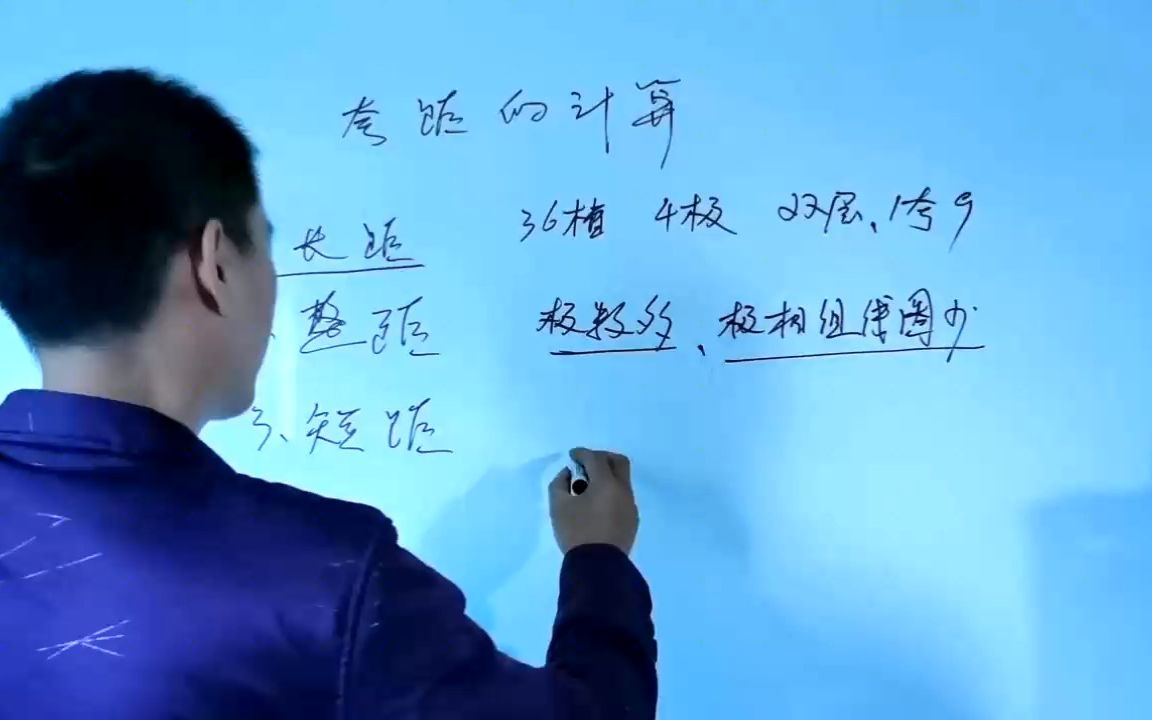 夸距的计算
长距
36植 4极 双层、1夸9
、整距
极数多、极相组线圈少
3、短距